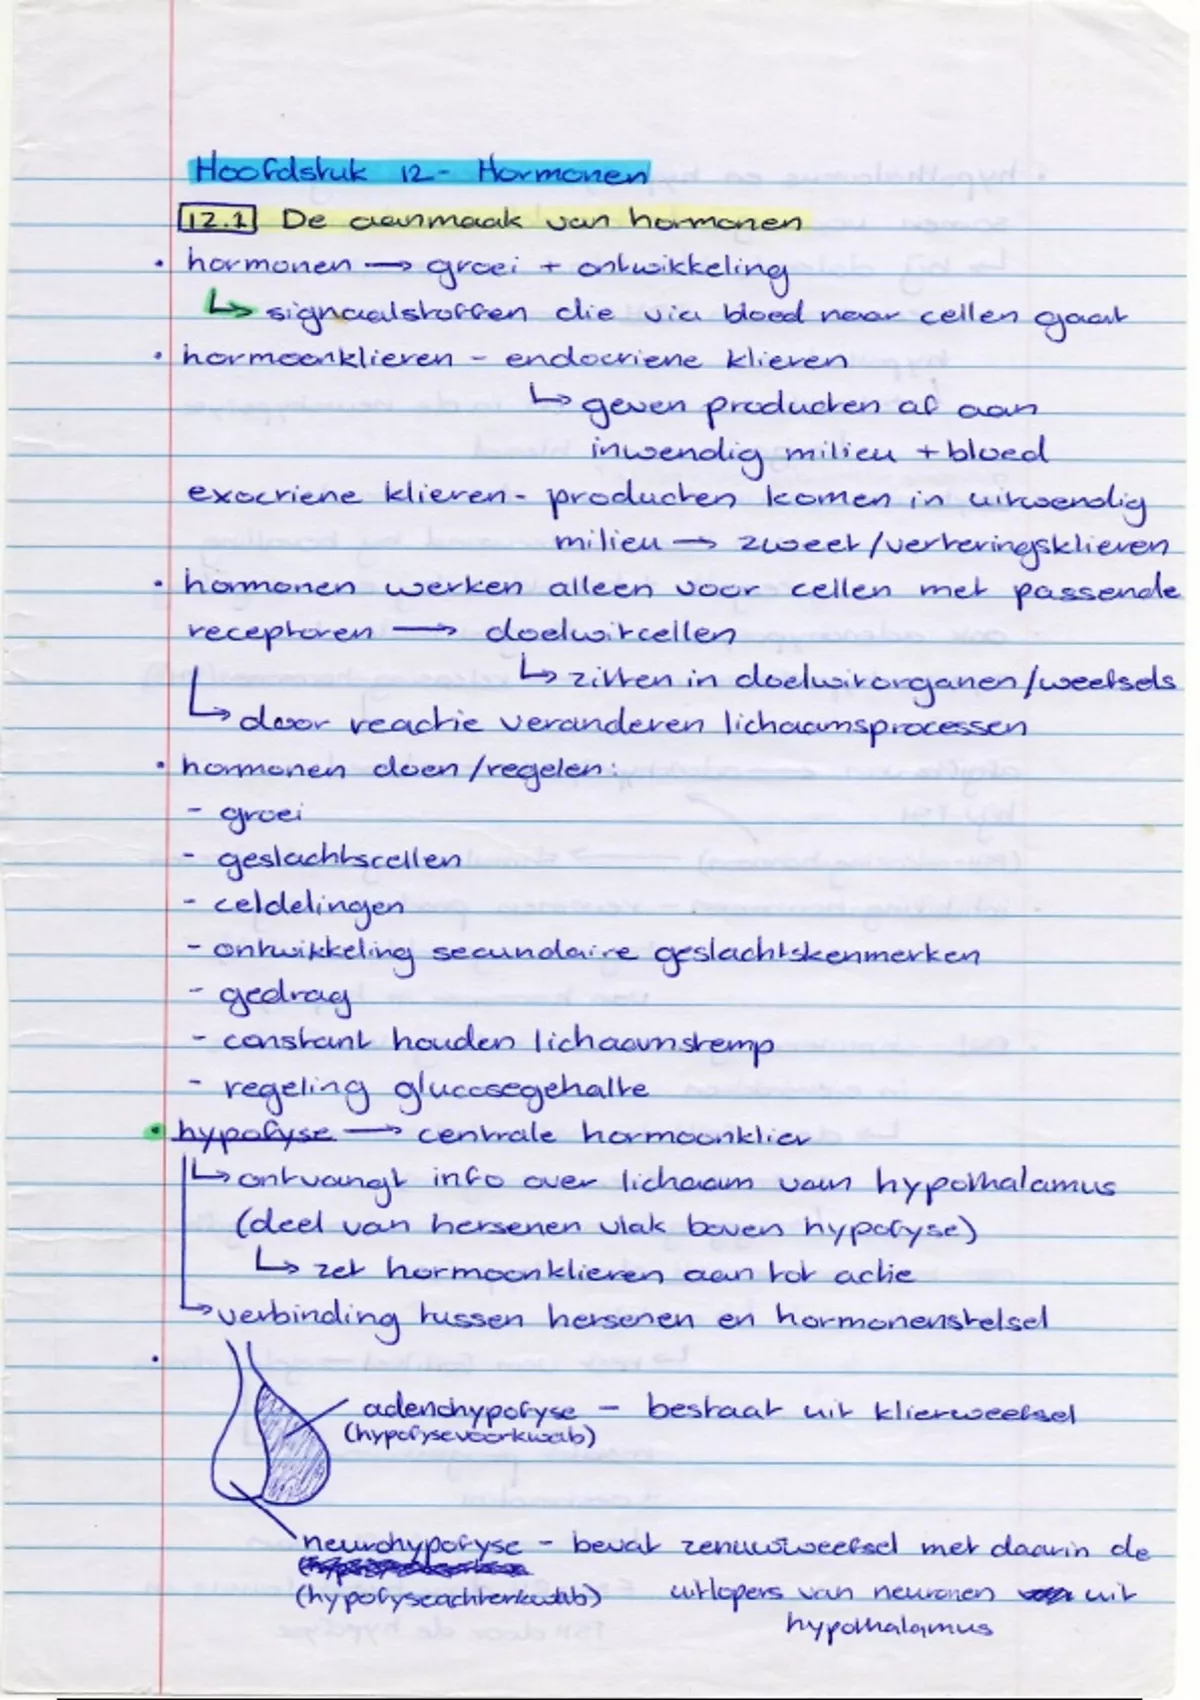 Hoofdstuk 12 - Hormonen
12.1 De aanmaak van hormonen
• hormonen → groei + ontwikkeling
↳ signaalstoffen die via bloed naar cellen gaat
• hormoonklieren - endocriene klieren
↳ geven producten af aan
inwendig milieu + bloed
exocriene klieren - producten komen in uitwendig
milieu → zweet/verteringsklieren
• hormonen werken alleen voor cellen met passende
receptoren → doelwitcellen
↳ zitten in doelwitorganen/weefsels
↳ door reactie veranderen lichaamsprocessen
• hormonen doen/regelen:
- groei
- geslachtscellen
- celdelingen
- ontwikkeling secundaire geslachtskenmerken
- gedrag
- constant houden lichaamstemp
- regeling glucosegehalte
• hypofyse → centrale hormoonklier
↳ ontvangt info over lichaam van hypothalamus
(deel van hersenen vlak boven hypofyse)
↳ zet hormoonklieren aan tot actie
↳ verbinding tussen hersenen en hormonenstelsel
•
adenohypofyse - bestaat uit klierweefsel
(hypofysevoorkwab)
neurohypofyse - bevat zenuwweefsel met daarin de
(hypofyseachterkwab) uitlopers van neuronen uit
hypothalamus